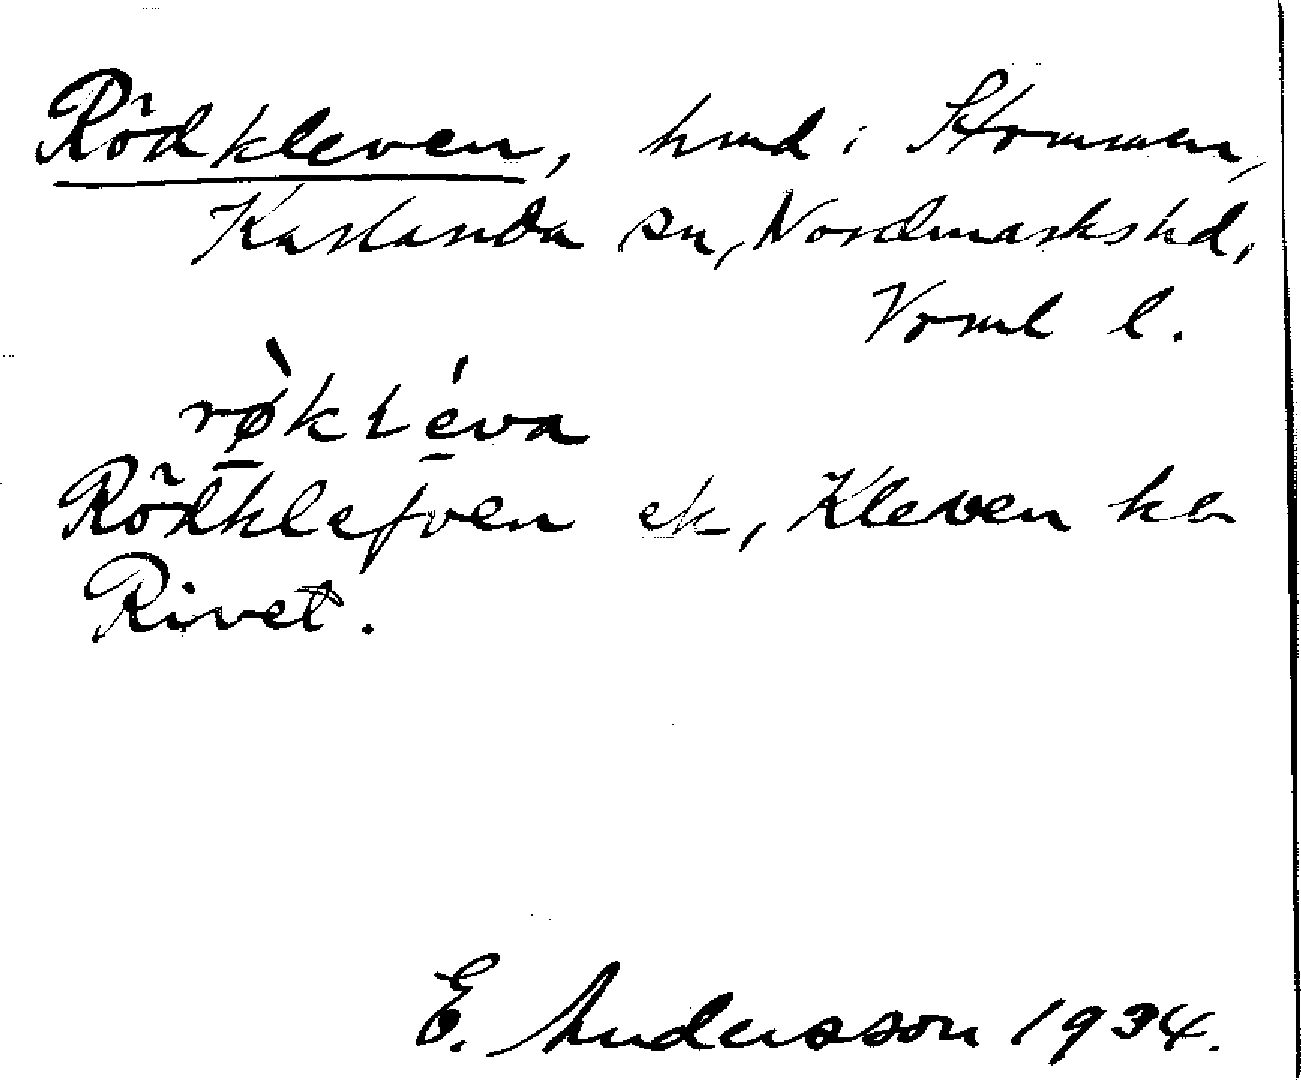 Rödkleven, hmd i Stommen,
Karlanda sn, Nordmarks hd,
Vrml l.
rø̀kléva
Rödklefven ek, Kleven ka
Rivet.
E. Andersson 1934.